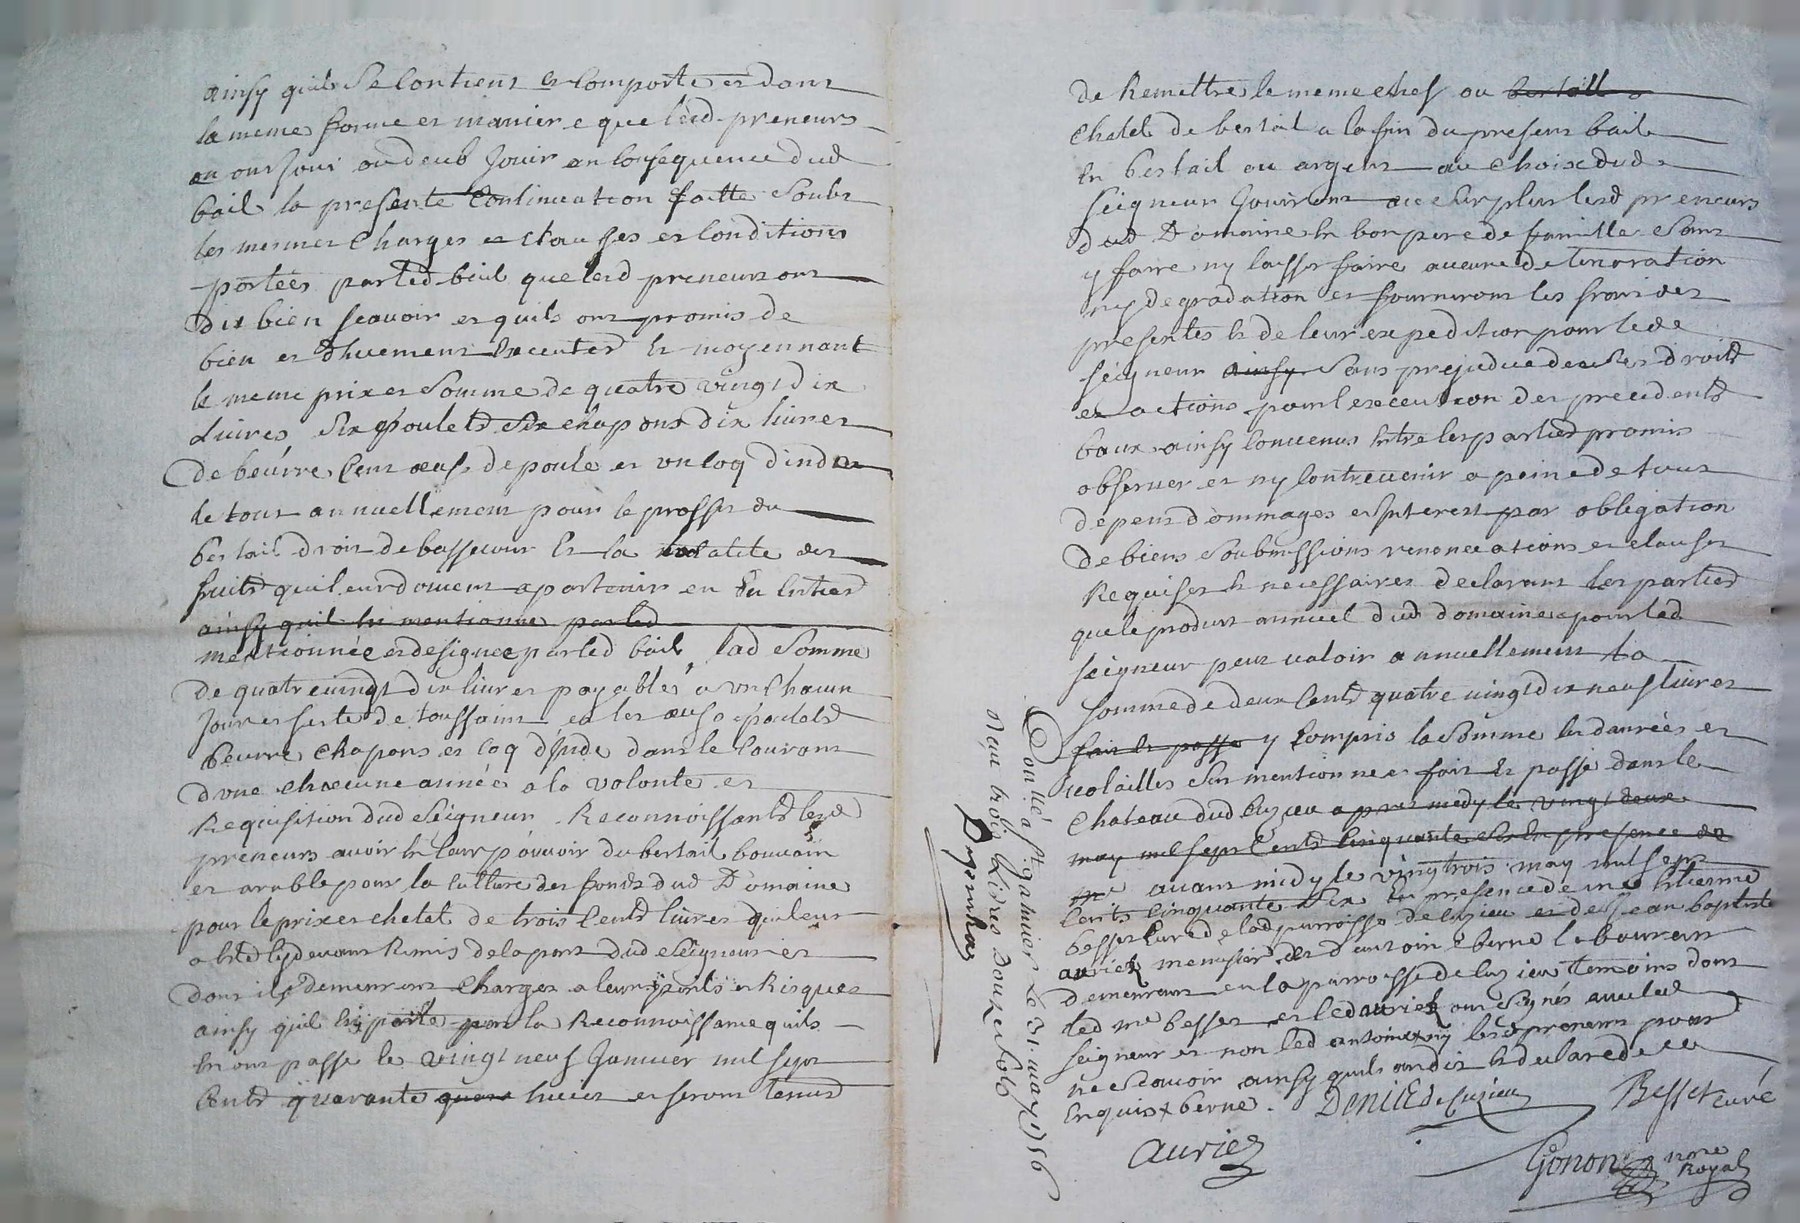 ainsy quils se contient et comporte et dans
la meme forme et maniere que lesd preneurs
en ont joui ou deub jouir en consequence dud
bail la presente continuation faitte soubs
les mesmes charges et clauses et conditions
portées par led bail que lesd preneurs ont
dit bien scavoir et quils ont promis de
bien et dhuement executer et moyennant
le meme prix et somme de quatre vingt dix
livres six poulets six chapons dix livres
de beurre cent oeufs de poule et un coq dindes
le tout annuellement pour le proffit du
bestail droit de bassecour et la totalite des
fruits qui leur doivent apartenir en entier
ainsy quil est mentionné par led
mentionnée et designee par led bail lad somme
de quatre vingt dix livres payables a un chacun
jour et feste de toussaint et les oeufs poulets
beurre chapons et coq d'jnde dans le courant
dune chacune année a la volonte et
requisition dud seigneur Reconnoissants lesd
preneurs avoir en leur pouvoir du bestail bouvain
et arable pour la culture des fonds dud Domaine
pour le prix et chetel de trois cents livres qui leur
a esté cydevant remis de la part dud seigneur et
dont ils demeurent charges a leurs perils et Risques
ainsy quil est porté par la Reconnoissance quils
en ont passé le vingt neuf Janvier mil sept
cents quarante huict et seront tenus
de Remettre le meme chef ou bestail
chetel de bestail a la fin du present bail
en bestail ou argent au choix dud
seigneur Jouiront au surplus lesd preneurs
dud Domaine en bon pere de famille sans
y faire ny laisser faire aucune deterioration
ny degradation et fourniront les frais des
presentes et de leur expedition pour led
seigneur ainsy sans prejudice de ses droits
et actions pour lexecution des precedents
baux ainsy convenus entre les parties promis
observer et ny contrevenir a peine de tous
depens dommages et Jnterest par obligation
de biens soubmissions renonciations et clauses
Requises et necessaires declarant les parties
que le produit annuel dud domaine pour led
seigneur peut valoir annuellement la
somme de deux cents quatre vingt dix neuf livres
fait et passé y compris la somme les danrées et
volailles sus mentionnees fait et passé dans le
chateau dud Luzieu apres midy le vingt deux
may mil sept cents cinquante six en presence de
me avant midy le vingt trois may mil sept
cents cinquante six en presence de me Estienne
besset curé de lad parroisse de Luzieu et de Jean baptiste
auriez menusier et d'antoine berne laboureur
demeurant en la parroisse de Luzieu temoins dont
led me besset et led auriez ont signés avec led
seigneur et non led antoine ny lesd preneurs pour
ne scavoir ainsy quils ont dit et declaré de ce
Enquis & berne.
DENIS de Cuzieu
Besset curé
auriez
Gonon nore Royal
Controllé a st galmier le 31 may 1756
Reçu trois livres douze sols
Dejonhas